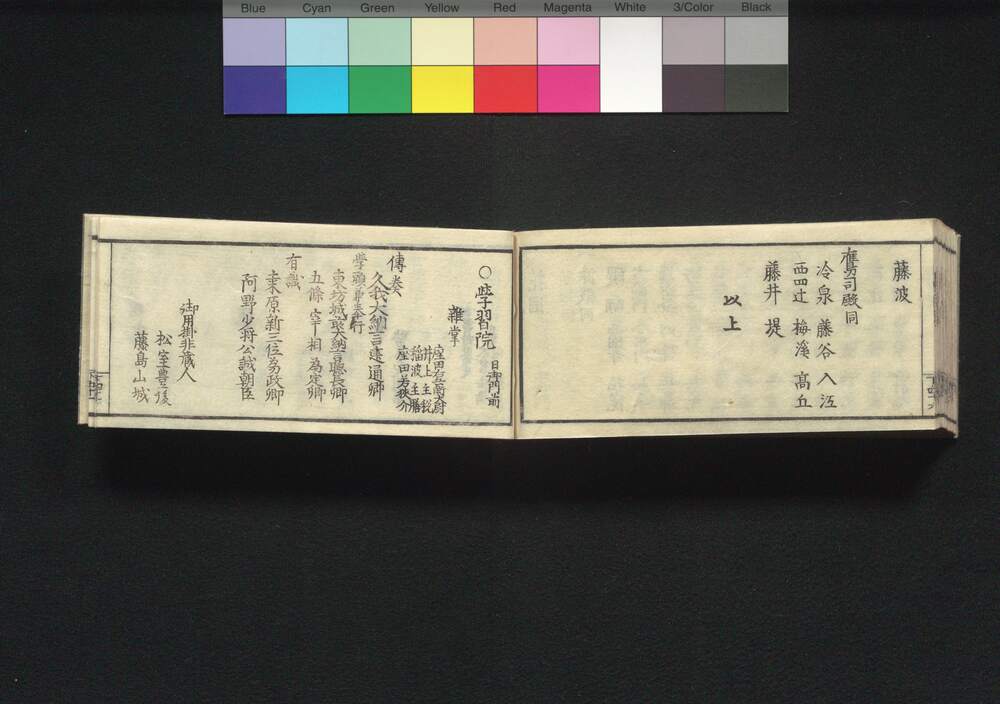 Blue Cyan Green Yellow Red Magenta White 3/Color Black
藤波
鷹司殿同
冷泉 藤谷 入江
西四辻 梅溪 高丘
藤井 堤
以上
○學習院 日御門前
雜掌
座田右衛門大尉
井上主税
稲波主膳
座田若狭介
傳奏
久我大納言建通卿
學頭兼奉行
東坊城前大納言聡長卿
五條宰相為定卿
有識
桒原新三位為政卿
阿野少将公誠朝臣
御用掛非蔵人
松室豊後
藤島山城